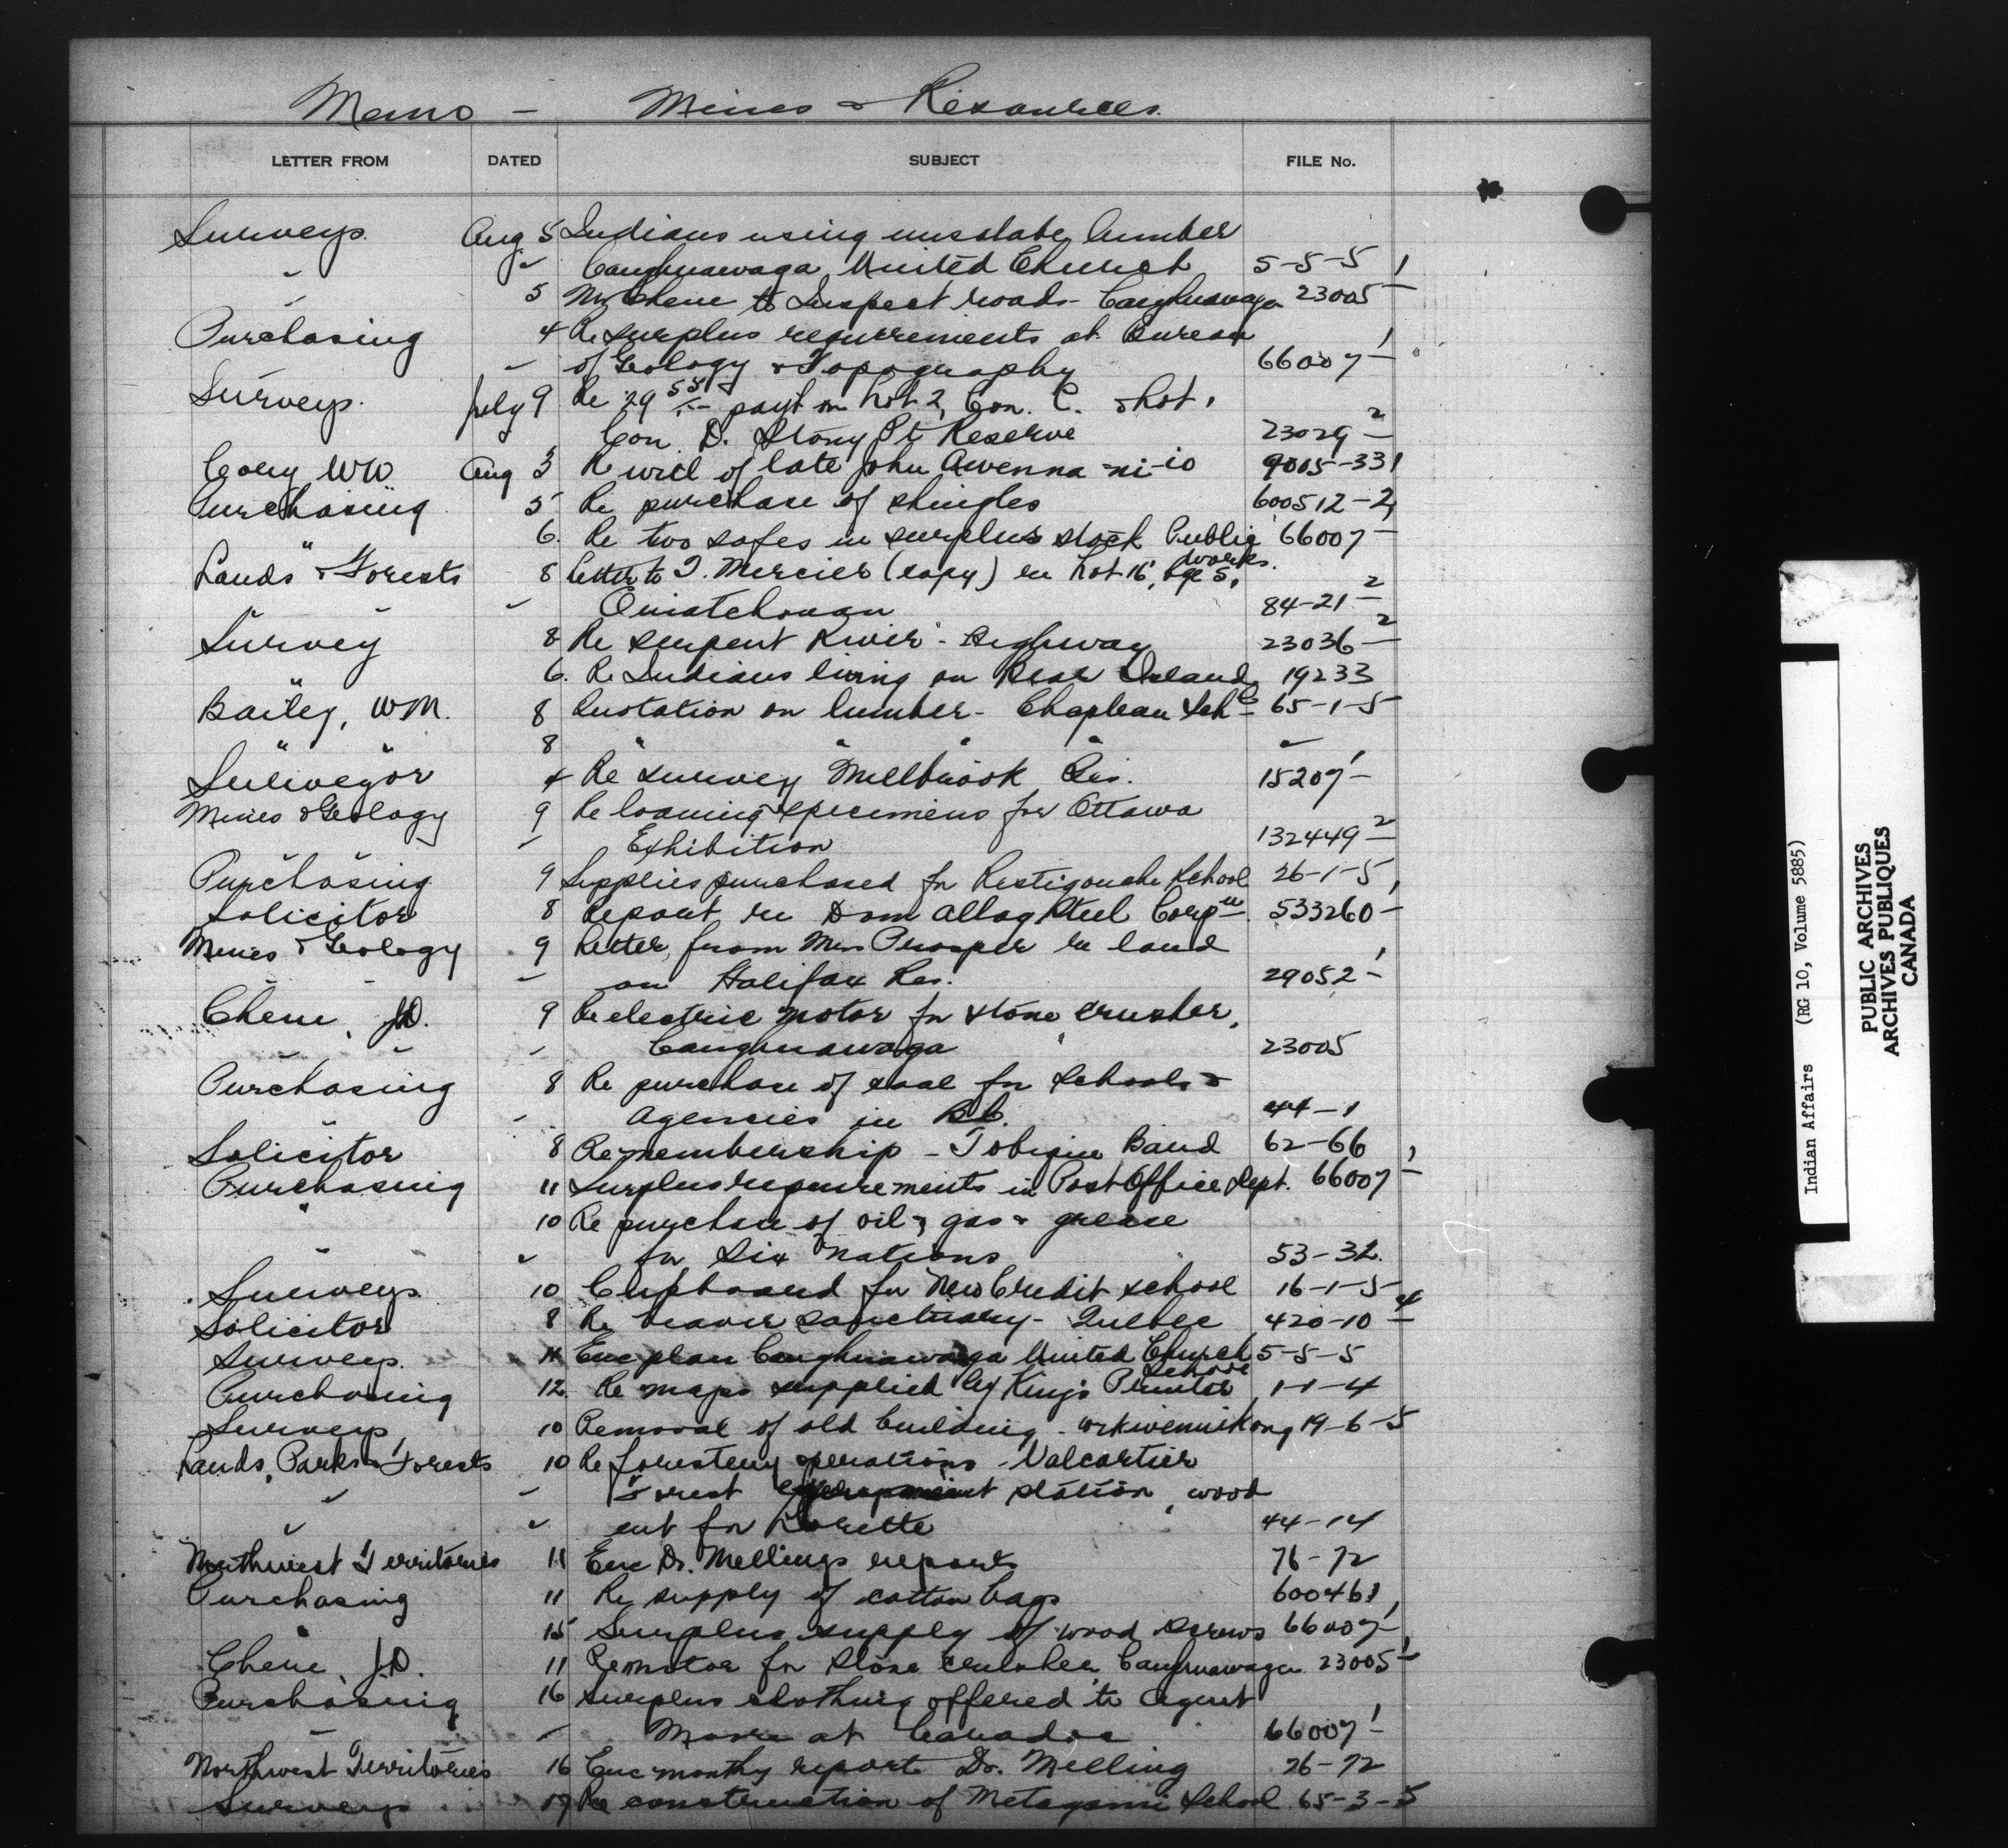 Memo - Mines & Resources.
LETTER FROM DATED SUBJECT FILE No.
Surveys. Aug 5 Indians using lumber
" " Caughnawaga United Church 5-5-5
" 5 Mr Chene to Inspect roads - Caughnawaga 23005 1/-
Purchasing 4 Re surplus requirements at Bureau
" of Geology & Topography 66007 1/-
Surveys. July 9 Re 29 55 payt on Lot 2, Con. C. & Lot 1
Con D. Stony Pt Reserve 23029 2/-
Cory WW Aug 3 Re will of late John Awenna-ni-io 9005-331
Purchasing 5 Re purchase of shingles 600512-2
" 6. Re two safes in surplus stock Public Works. 66007 1/-
Lands & Forests 8 Letter to T. Mercier (copy) re Lot 16, Rge 5,
" " Ouiatchouan 84-21 2/-
Survey 8 Re Serpent River - Highway 23036 2/-
" 6. Re Indians living on Bear Island 19233
Bailey, WM. 8 Quotation on lumber - Chapleau Schl 65-1-5
" " 8 " " " " "
Surveyor 4 Re survey Millbrook Res. 15207 1/-
Mines & Geology 9 Re loaning specimens for Ottawa
" Exhibition 132449 2/-
Purchasing 9 Supplies purchased for Restigouche School 26-1-5
Solicitor 8 Report re Dom Alloy Steel Corpn. 533260 1/-
Mines & Geology 9 Letter from Mrs Prosper re land
" " " on Halifax Res. 29052 1/-
Chene, JD. 9 Re electric motor for stone crusher,
" " " Caughnawaga 23005
Purchasing 8 Re purchase of coal for schools &
" agencies in BC. 44-1
Solicitor 8 Re membership - Tobique Band 62-66
Purchasing 11 Surplus requirements in Post Office Dept. 66007 1/-
" 10 Re purchase of oil & gas & grease
" " for Six Nations 53-32.
Surveys 10 Cupboard for New Credit school 16-1-5
Solicitor 8 Re beaver sanctuary - Quebec 420-10 4/-
Surveys. 11 Enc plan Caughnawaga United Church School 5-5-5
Purchasing 12. Re maps supplied by King's Printer 1-1-4
Surveys 10 Removal of old building - Wikwemikong 19-6-5
Lands, Parks & Forests 10 Re forestery operations - Valcartier
" " Forest station wood
" " cut for Lorette 44-14
Northwest Territories 11 Enc Dr. Mellings reports 76-72
Purchasing 11 Re supply of cotton bags 600461
" 15 Surplus supply of wood screws 66007 1/-
Chene, J.D. 11 Re motor for stone crusher Caughnawaga 23005 1/-
Purchasing 16 Surplus clothing offered to Agent
" at 66007 1/-
Northwest Territories 16 Enc monthy report Dr. Melling 76-72
Surveys 17 Re construction of Metagami School 65-3-5
Indian Affairs (RG 10, Volume 5885)
PUBLIC ARCHIVES
ARCHIVES PUBLIQUES
CANADA